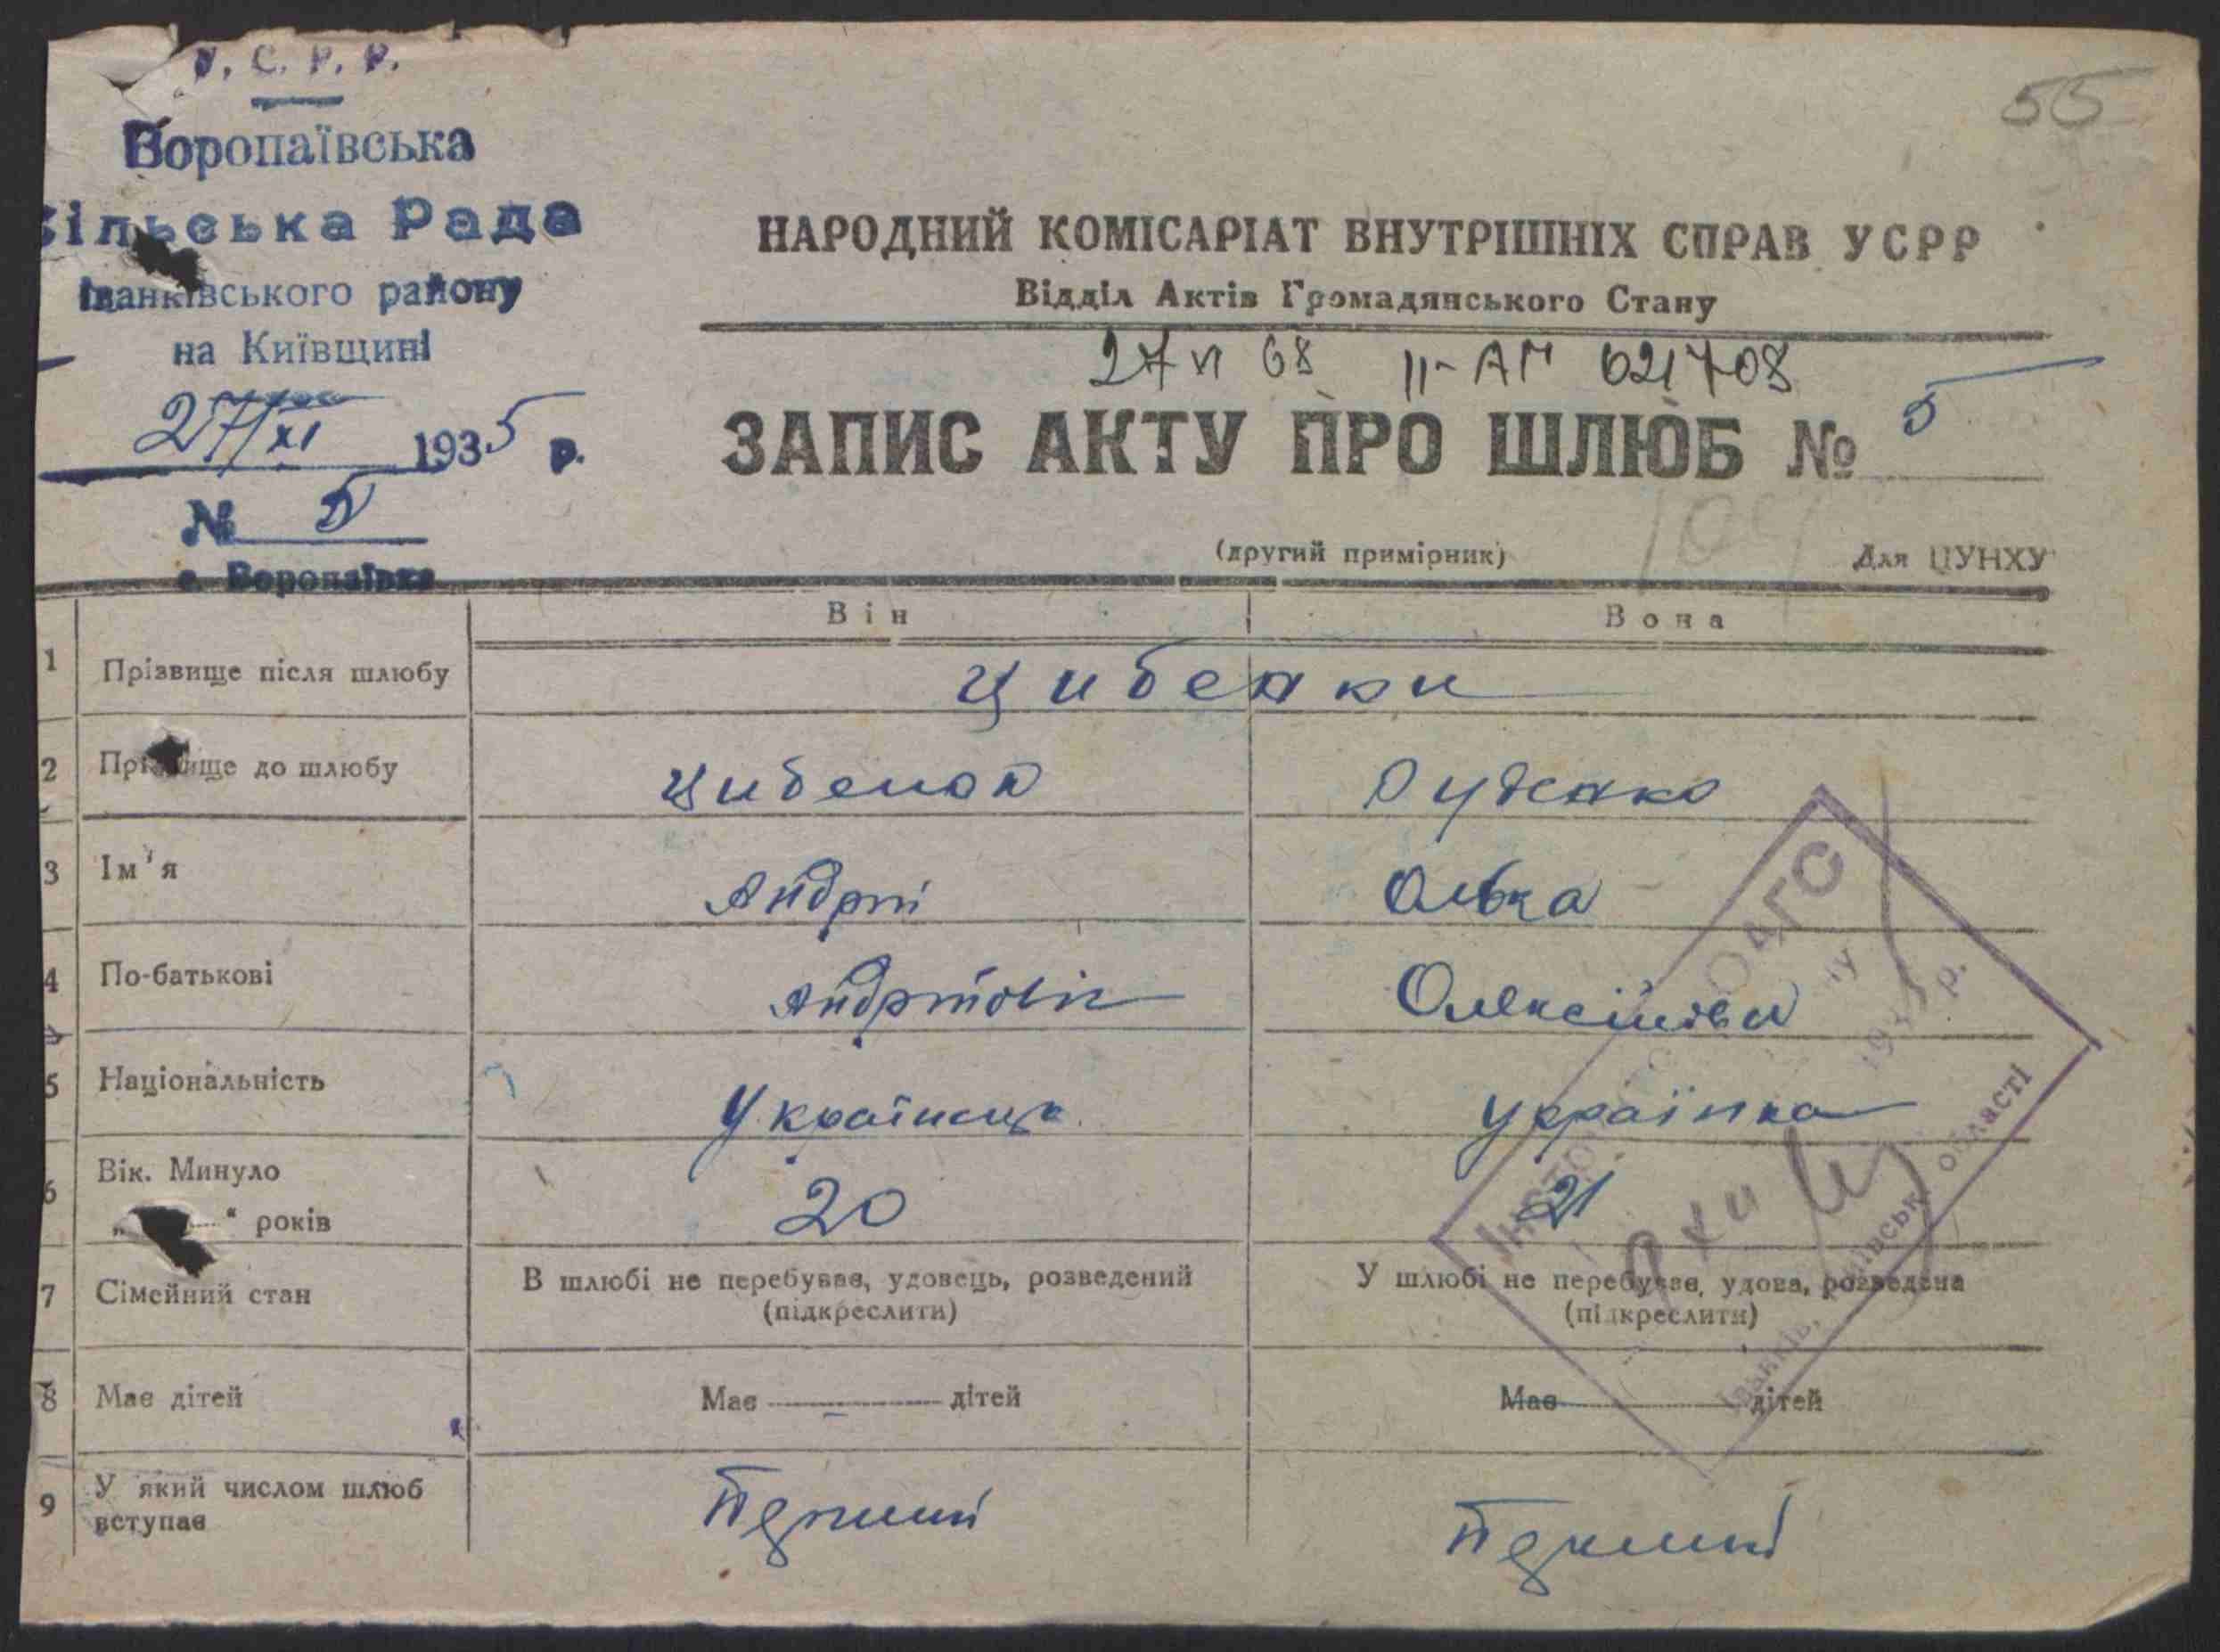 У. С. Р. Р.
Воропаївська
Сільська Рада
Іванківського району
на Київщині
27/XI 1935 р.
№ 5
с. Воропаївка
55
НАРОДНИЙ КОМІСАРІАТ ВНУТРІШНІХ СПРАВ УСРР
Відділ Актів Громадянського Стану
27 VI 68 II-АП 021708
ЗАПИС АКТУ ПРО ШЛЮБ № 5
(другий примірник) Для ЦУНХУ
Він Вона
1 Прізвище після шлюбу Цибенки
2 Прізвище до шлюбу Цибенко Руденко
3 Ім'я Андрій Олька
4 По-батькові Андрійовіч Олексіївна
5 Національність Українець Українка
6 Вік. Минуло
„ — " років 20 21
7 Сімейний стан В шлюбі не перебував, удовець, розведений У шлюбі не перебувае, удова, розведена
(підкреслити) (підкреслити)
8 Має дітей Має — дітей Має дітей
9 У який числом шлюб
вступає Перший Перший
ОАГС
області